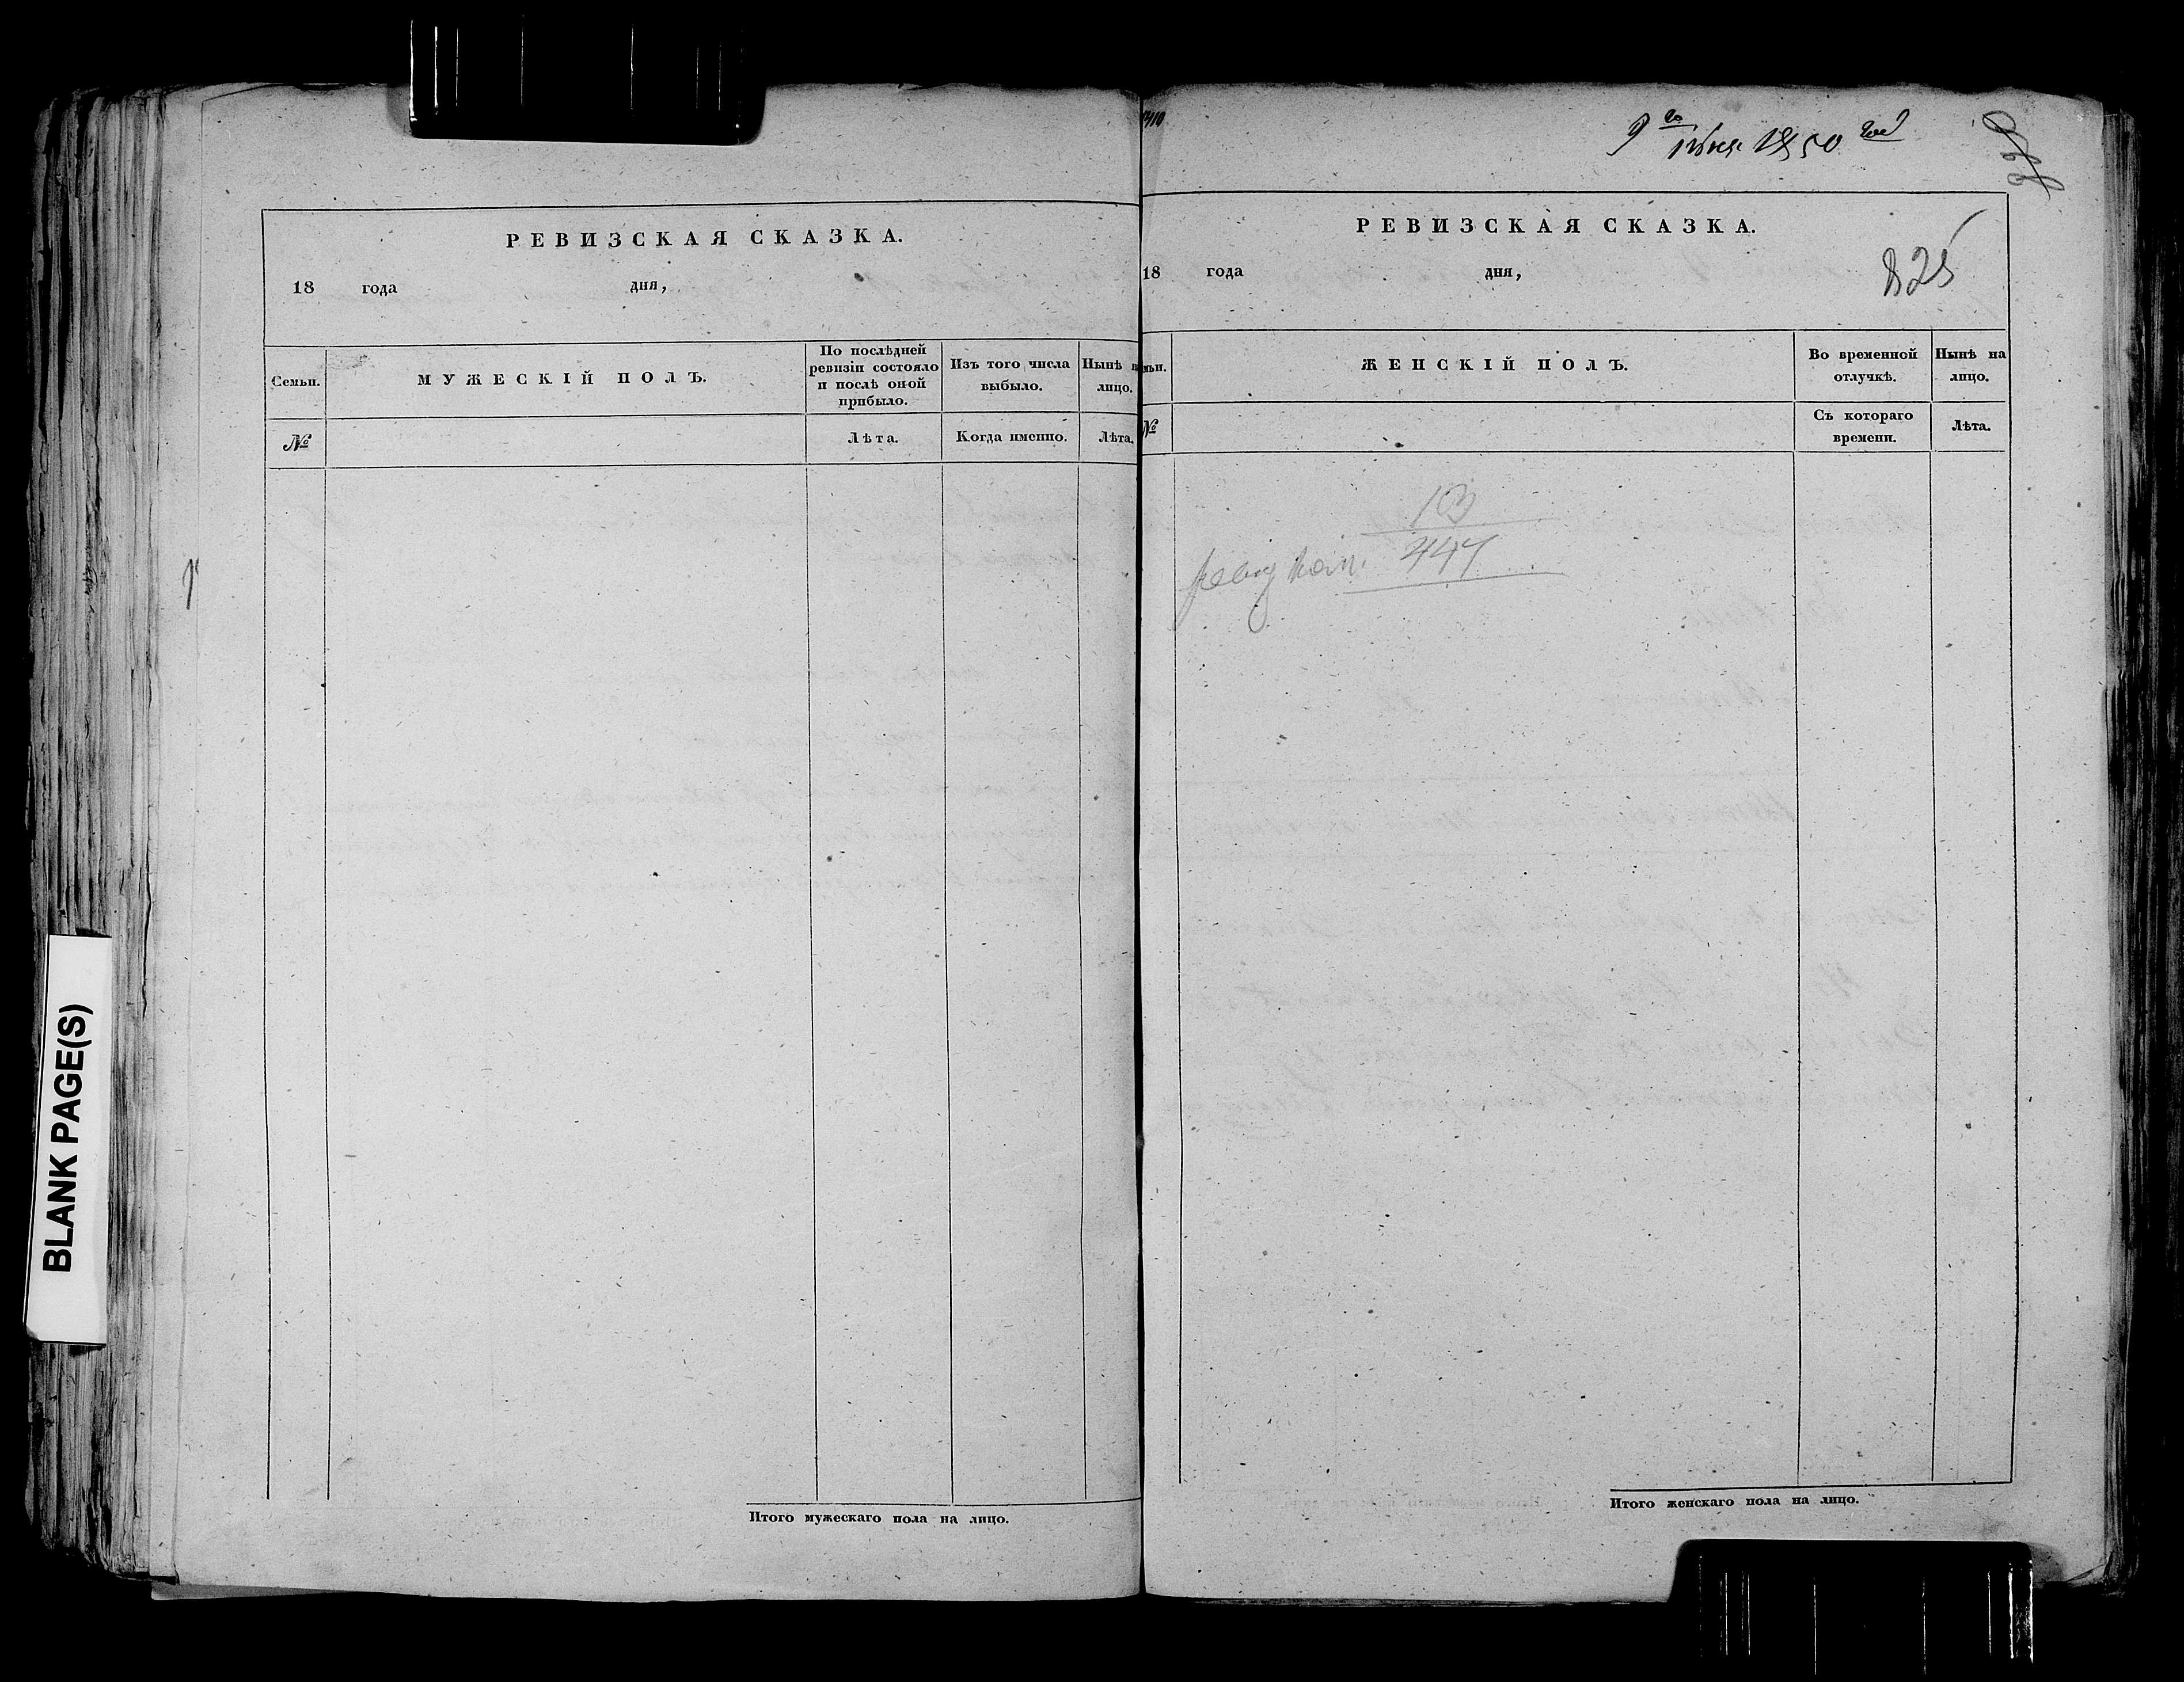 BLANK PAGE(S)
РЕВИЗСКАЯ СКАЗКА.
18 года дня,
Семьи.
МУЖЕСКІЙ ПОЛЪ.
По послѣдней
ревизіи состояло
и послѣ оной
прибыло.
Изъ того числа
выбыло.
Нынѣ
лицо.
№
Лѣта.
Когда именно.
Лѣта.
Итого мужескаго пола на лицо.
9го Июня 1850 год
РЕВИЗСКАЯ СКАЗКА.
18 года дня,
825
ЖЕНСКІЙ ПОЛЪ.
Во временной
отлучкѣ.
Нынѣ на
лицо.
№
Съ котораго
времени.
Лѣта.
103
447
Итого женскаго пола на лицо.